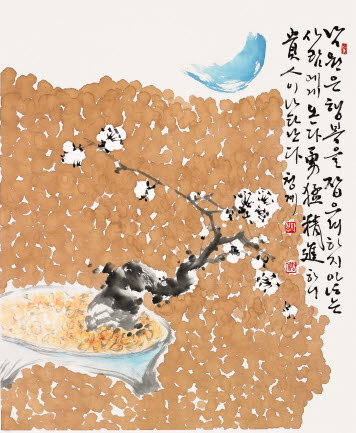 낙원은 행복을 잡으려 하지 않는
사람에게 온다 勇猛精進하니
貴人이 나타난다